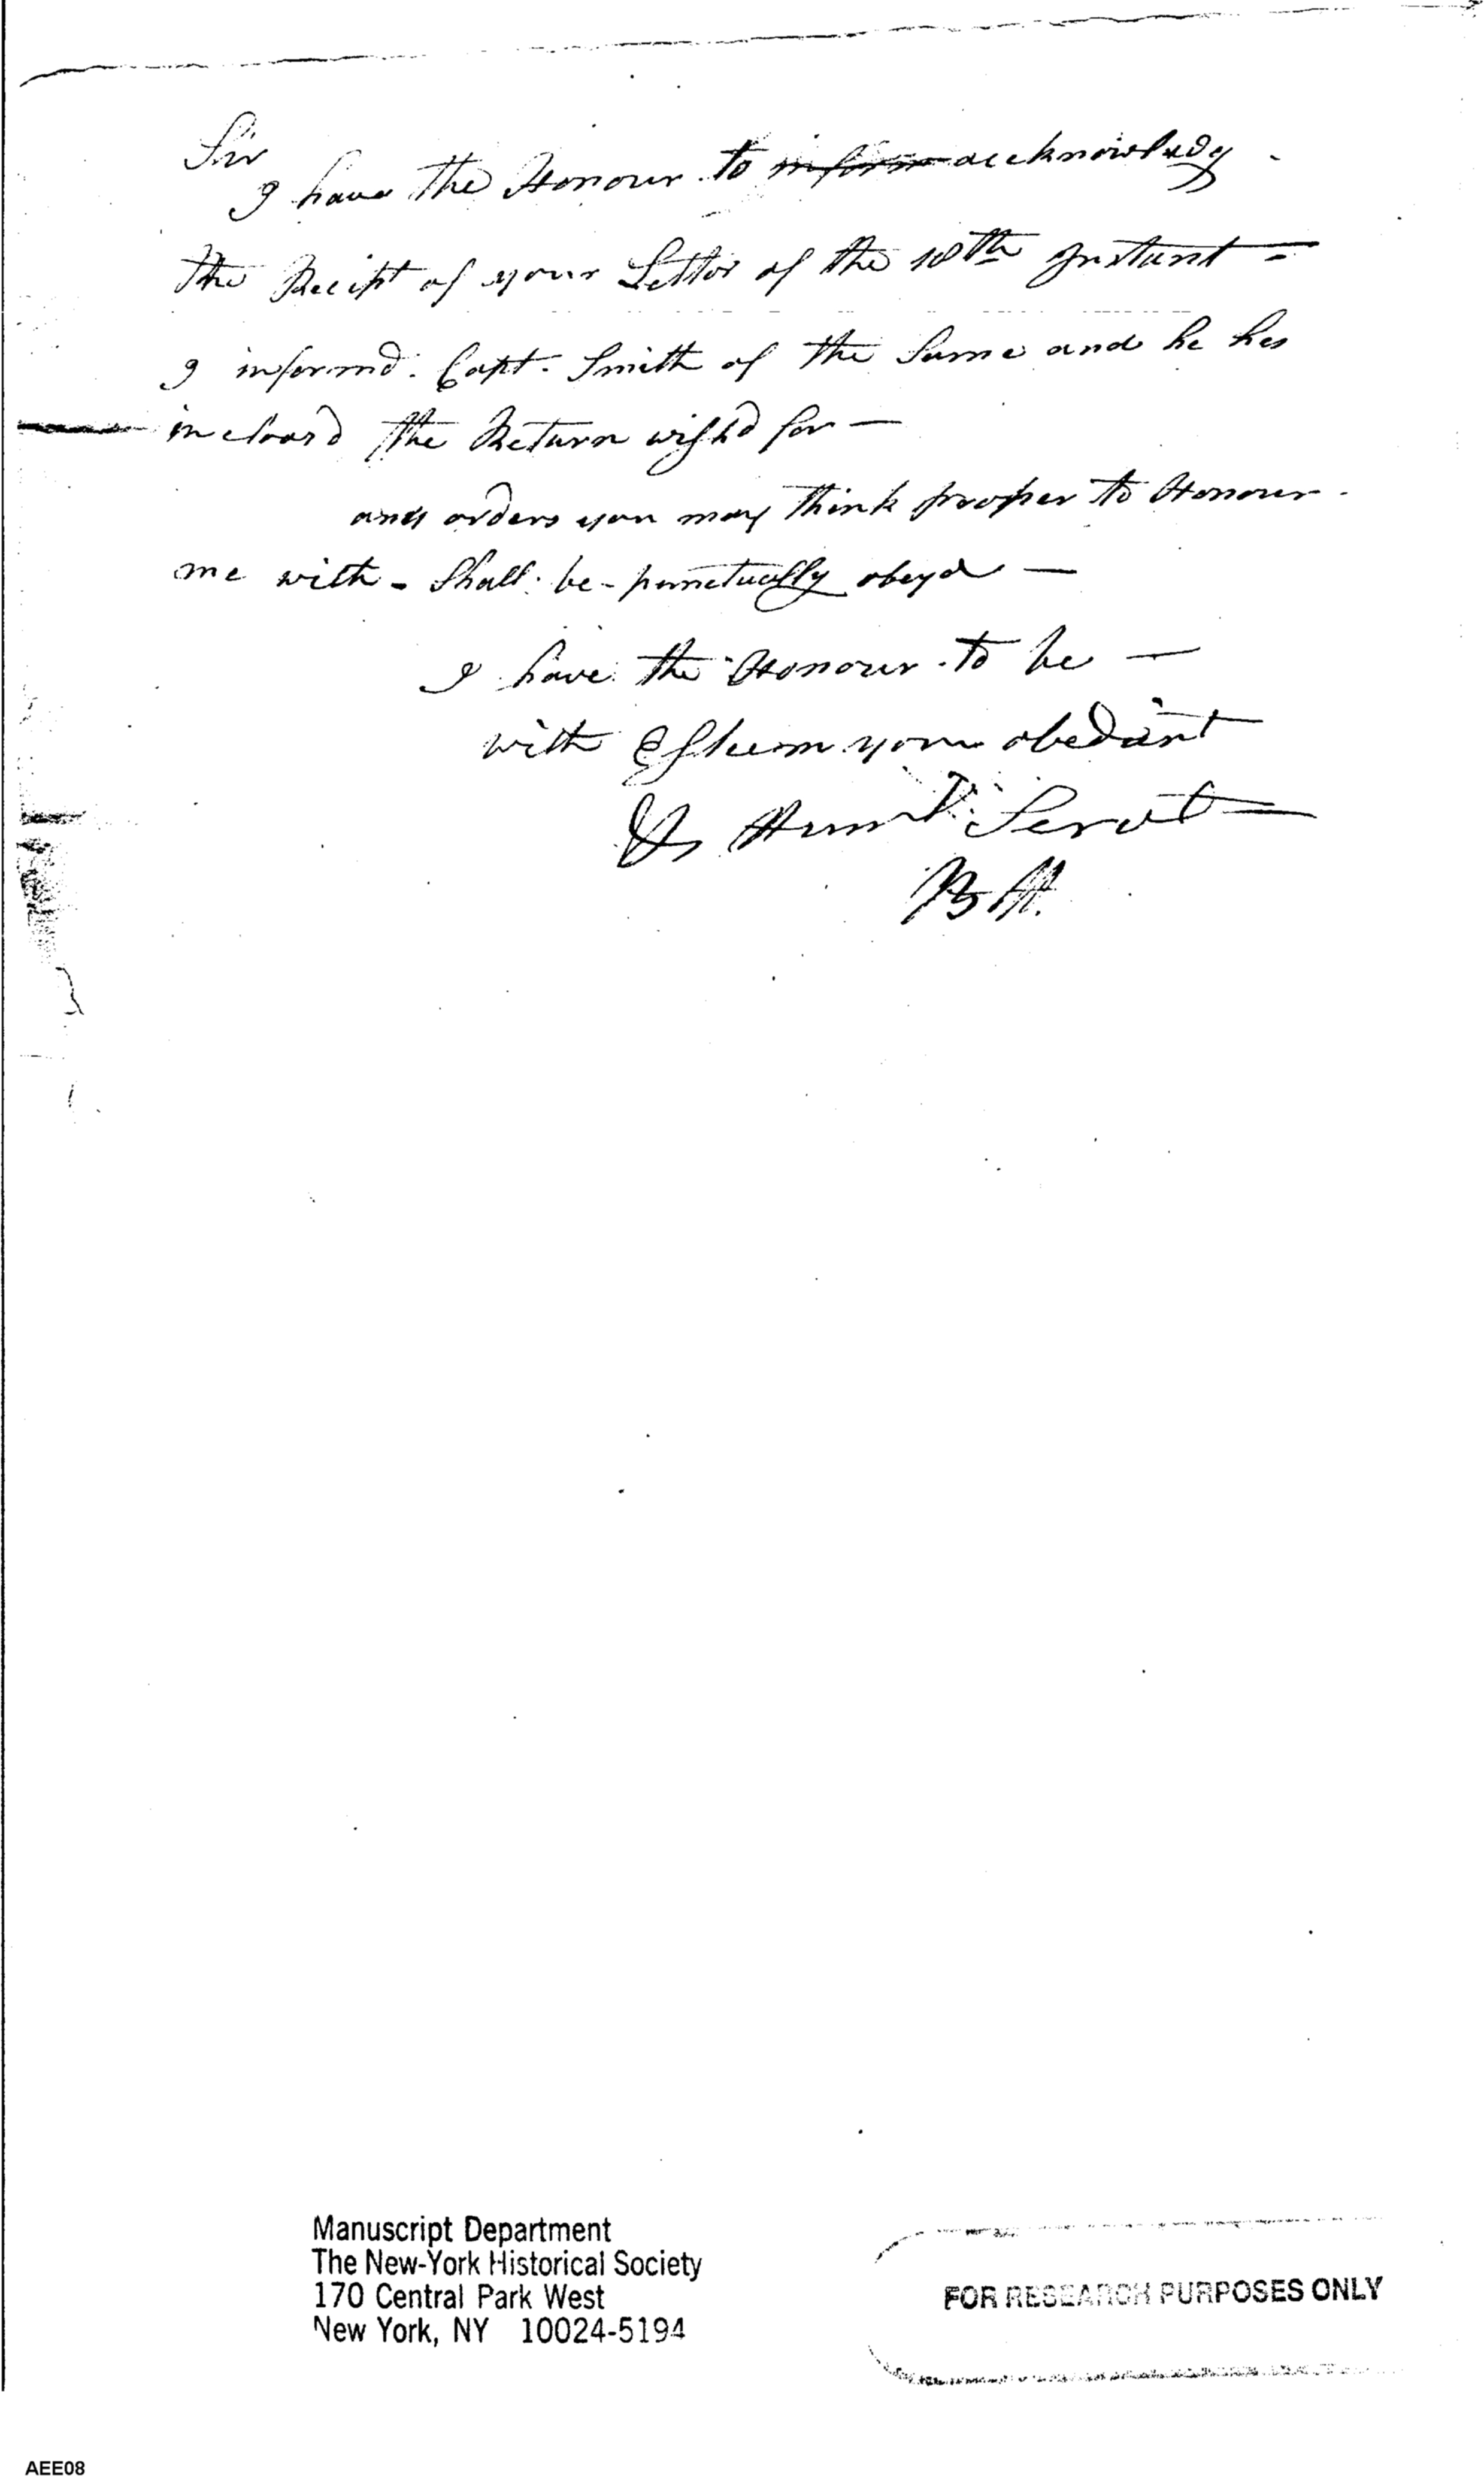 Sir
I have the Honour to inform acknowledg
the Recipt of your Letter of the 10th Instant
I informd. Capt. Smith of the Same and he hes
inclosed the Return wishd for —
any orders you may think proper to Honour
me with - Shall be - punctually obeyd —
I have the Honour to be —
with Esteem your obediant
Hum Servt
BH.
Manuscript Department
The New-York Historical Society
170 Central Park West
New York, NY 10024-5194
FOR RESEARCH PURPOSES ONLY
AEE08